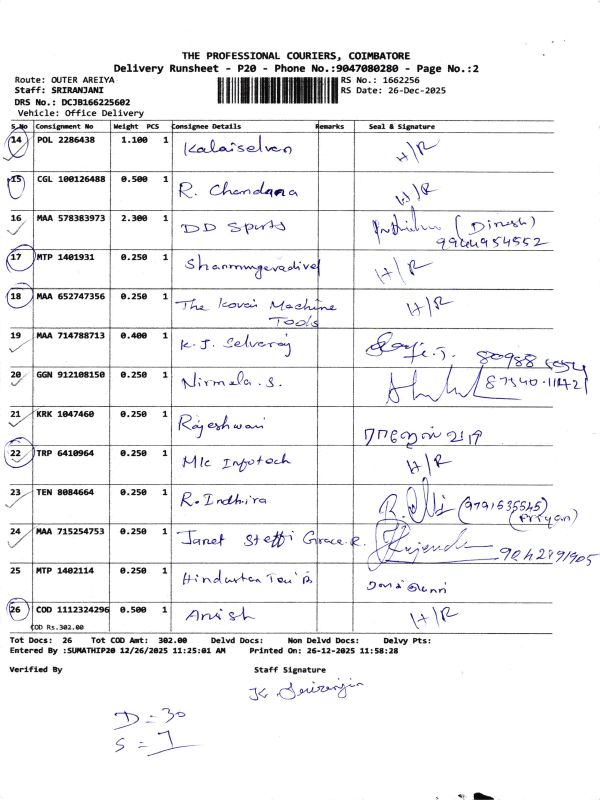 THE PROFESSIONAL COURIERS, COIMBATORE
Delivery Runsheet - P20 - Phone No.:9047080280 - Page No.:2
Route: OUTER AREIYA RS No.: 1662256
Staff: SRIRANJANI RS Date: 26-Dec-2025
DRS No.: DCJB166225602
Vehicle: Office Delivery
S.No Consignment No Weight PCS Consignee Details Remarks Seal & Signature
14 POL 2286438 1.100 1 Kalaiselvan H/R
15 CGL 100126488 0.500 1 R. Chandana H/R
16 MAA 578383973 2.300 1 DD Sports (Dinesh)
9944954552
17 MTP 1401931 0.250 1 Shanmugavadivel H/R
18 MAA 652747356 0.250 1 The Kovai Machine H/R
Tools
19 MAA 714788713 0.400 1 K.J. Selvaraj
20 GGN 912108150 0.250 1 Nirmala.S.
21 KRK 1047460 0.250 1 Rajeshwari
22 TRP 6410964 0.250 1 Mlc Infotech H/R
23 TEN 8084664 0.250 1 R.Indhira (9791635545)
(Priyan)
24 MAA 715254753 0.250 1 Janet Steffi Grace.R. Rajendra
25 MTP 1402114 0.250 1 Hindustan
26 COD 1112324296 0.500 1 Anish H/R
COD Rs.302.00
Tot Docs: 26 Tot COD Amt: 302.00 Delvd Docs: Non Delvd Docs: Delvy Pts:
Entered By :SUMATHIP20 12/26/2025 11:25:01 AM Printed On: 26-12-2025 11:58:28
Verified By Staff Signature
K. Sriranjini
D = 30
S = 7